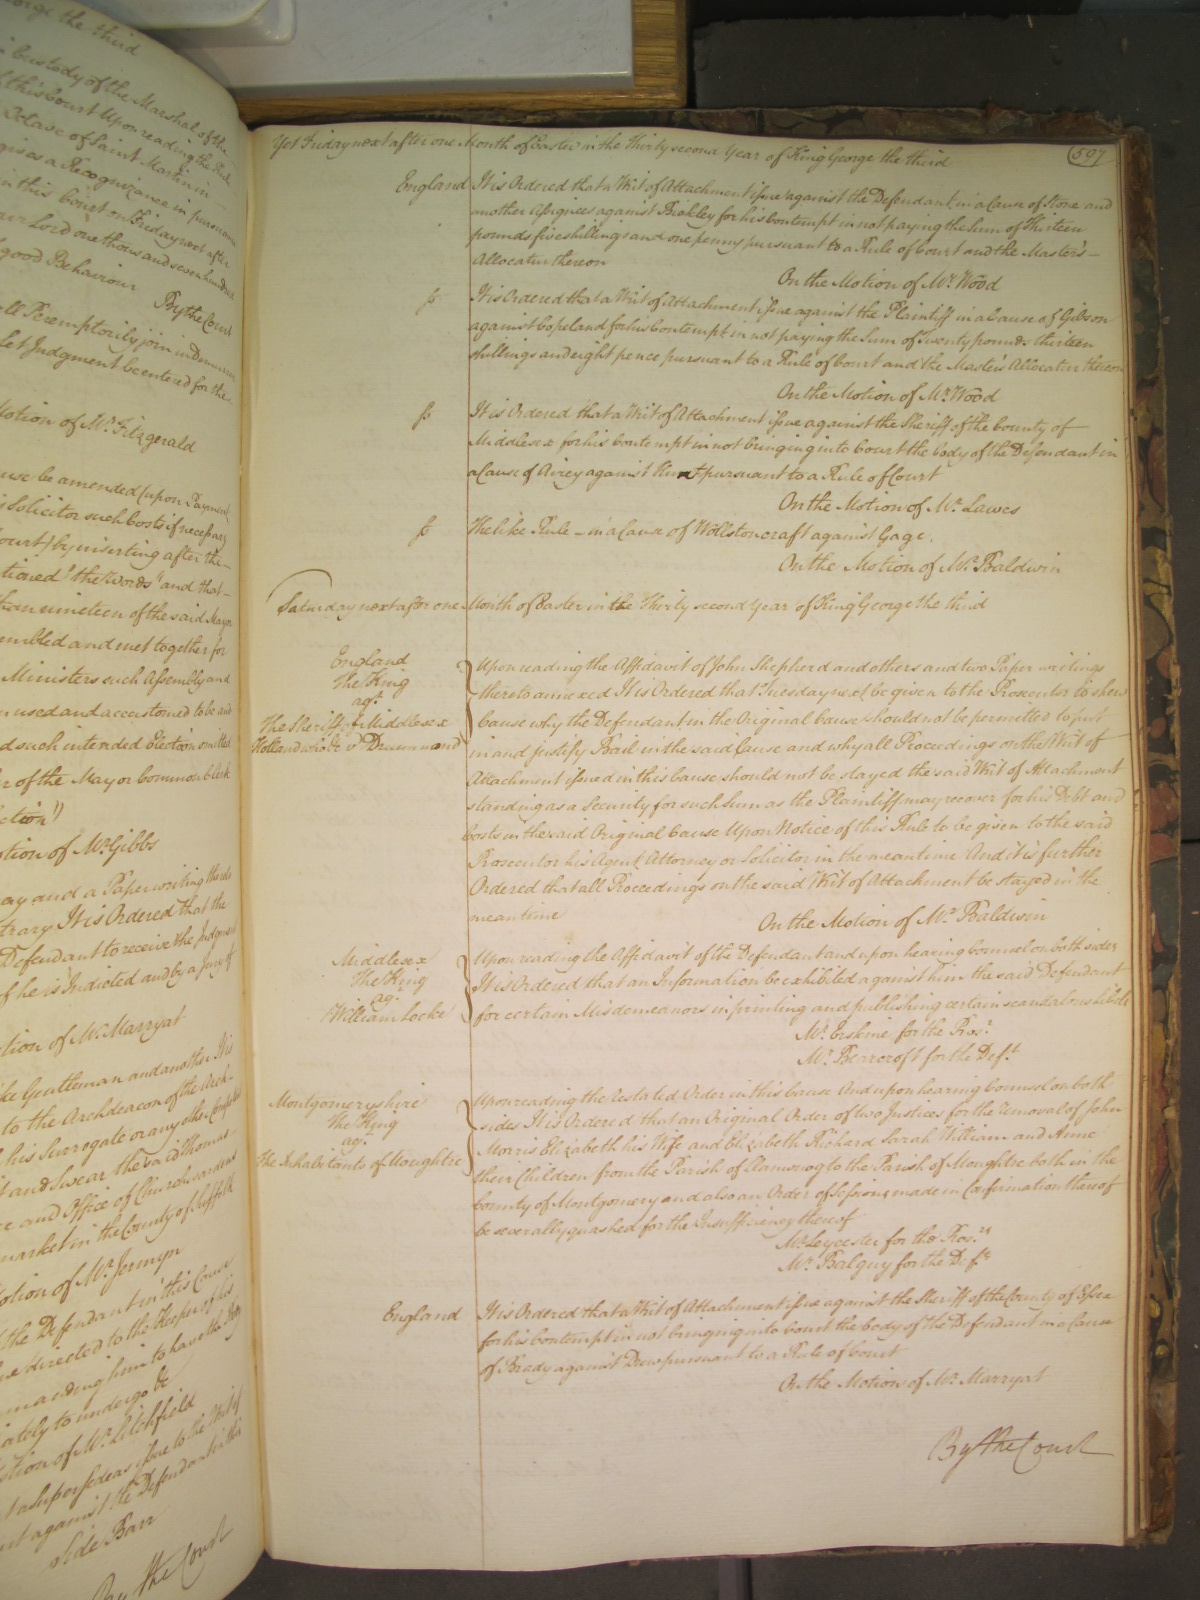 orge the third
custody of the Marshal of the
this Court Upon reading the Rule
Solace of Saint Martin in
gives a Recognizance in pursuance
in this Court on Friday next after
our Lord one thousand seven hundred
good Behaviour By the Court
all Peremptorily join in Demurrer
let Judgment be entered for the
Motion of Mr. Fitzgerald
use be amended (upon Payment
Solicitor such Costs if necessary
Court) by inserting after the
tioned "the words" and that
than nineteen of the said Mayor
embled and met together for
Ministers such Assembly and
used and accustomed to be and
d such intended Election omitted
r of the Mayor Common Clerk
ction")
otion of Mr. Gibbs
ay and a Paper writing thereto
trary It is Ordered that the
Defendant to receive the Judgment
f he is Indicted and by a Jury of
tion of Mr. Marryat
ke Gentleman and another It is
to the Archdeacon of the Arch-
his Surrogate or any other Competent
t and Swear the said Thomas
ce and Office of Churchwardens
market in the County of Suffolk
otion of Mr. Jermyn
the Defendant in this Cause
ue directed to the Keeper of his
manding him to have the Body
iately to undergo &c
otion of Mr. Litchfield
t a Supersedeas issue to the Writ of
nt against the Defendant in this
Side Barr
By the Court
597
Yet Friday next after one Month of Easter in the Thirty second Year of King George the third
England It is Ordered that a Writ of Attachment issue against the Defendant in a Cause of Stone and
another Assignees against Brokley for his Contempt in not paying the Sum of Thirteen
pounds five shillings and one penny pursuant to a Rule of Court and the Master's
Allocatur thereon
On the Motion of Mr. Wood
It is Ordered that a Writ of Attachment issue against the Plaintiff in a Cause of Gibson
against Copeland for his Contempt in not paying the Sum of Twenty pounds thirteen
shillings and eight pence pursuant to a Rule of Court and the Master's Allocatur thereon
On the Motion of Mr. Wood
It is Ordered that a Writ of Attachment issue against the Sheriff of the County of
Middlesex for his Contempt in not bringing into Court the body of the Defendant in
a Cause of Airey against pursuant to a Rule of Court
On the Motion of Mr. Lawes
The like Rule – in a Cause of Wollstoncraft against Gage.
On the Motion of Mr. Baldwin
Saturday next after one Month of Easter in the Thirty second Year of King George the third
England
The King
agt.
The Sheriff of Middlesex
Holland v Drummond
Upon reading the Affidavit of John Shepherd and others and two Paper writings
thereto annexed It is Ordered that Tuesday next be given to the Prosecutor to shew
Cause why the Defendant in the Original Cause should not be permitted to put
in and justify Bail in the said Cause and why all Proceedings on the Writ of
Attachment issued in this Cause should not be stayed the said Writ of Attachment
standing as a Security for such Sum as the Plaintiff may recover for his Debt and
Costs in the said Original Cause Upon Notice of this Rule to be given to the said
Prosecutor his Agent Attorney or Solicitor in the meantime And it is further
Ordered that all Proceedings on the said Writ of Attachment be stayed in the
meantime
On the Motion of Mr. Baldwin
Middlesex
The King
agt.
William Locke
Upon reading the Affidavit of the Defendant and upon hearing Counsel on both sides
It is Ordered that an Information be exhibited against him the said Defendant
for certain Misdemeanors in printing and publishing certain scandalous libels
Mr. Erskine for the Pros.r
Mr. Bearcroft for the Def.t
Montgomeryshire
The King
agt.
The Inhabitants of Moughtre
Upon reading the Restated Order in this Cause And upon hearing Counsel on both
sides It is Ordered that an Original Order of two Justices for the removal of John
Morris Elizabeth his Wife and Elizabeth Richard Sarah William and Anne
their Children from the Parish of Llanwnog to the Parish of Moughtre both in the
County of Montgomery and also an Order of Sessions made in Confirmation thereof
be severally quashed for the Insufficiency thereof
Mr. Leycester for the Pros.rs
Mr. Balguy for the Def.ts
England It is Ordered that a Writ of Attachment issue against the Sheriff of the County of Essex
for his Contempt in not bringing into Court the body of the Defendant in a Cause
of Brady against Drew pursuant to a Rule of Court
On the Motion of Mr. Marryat
By the Court